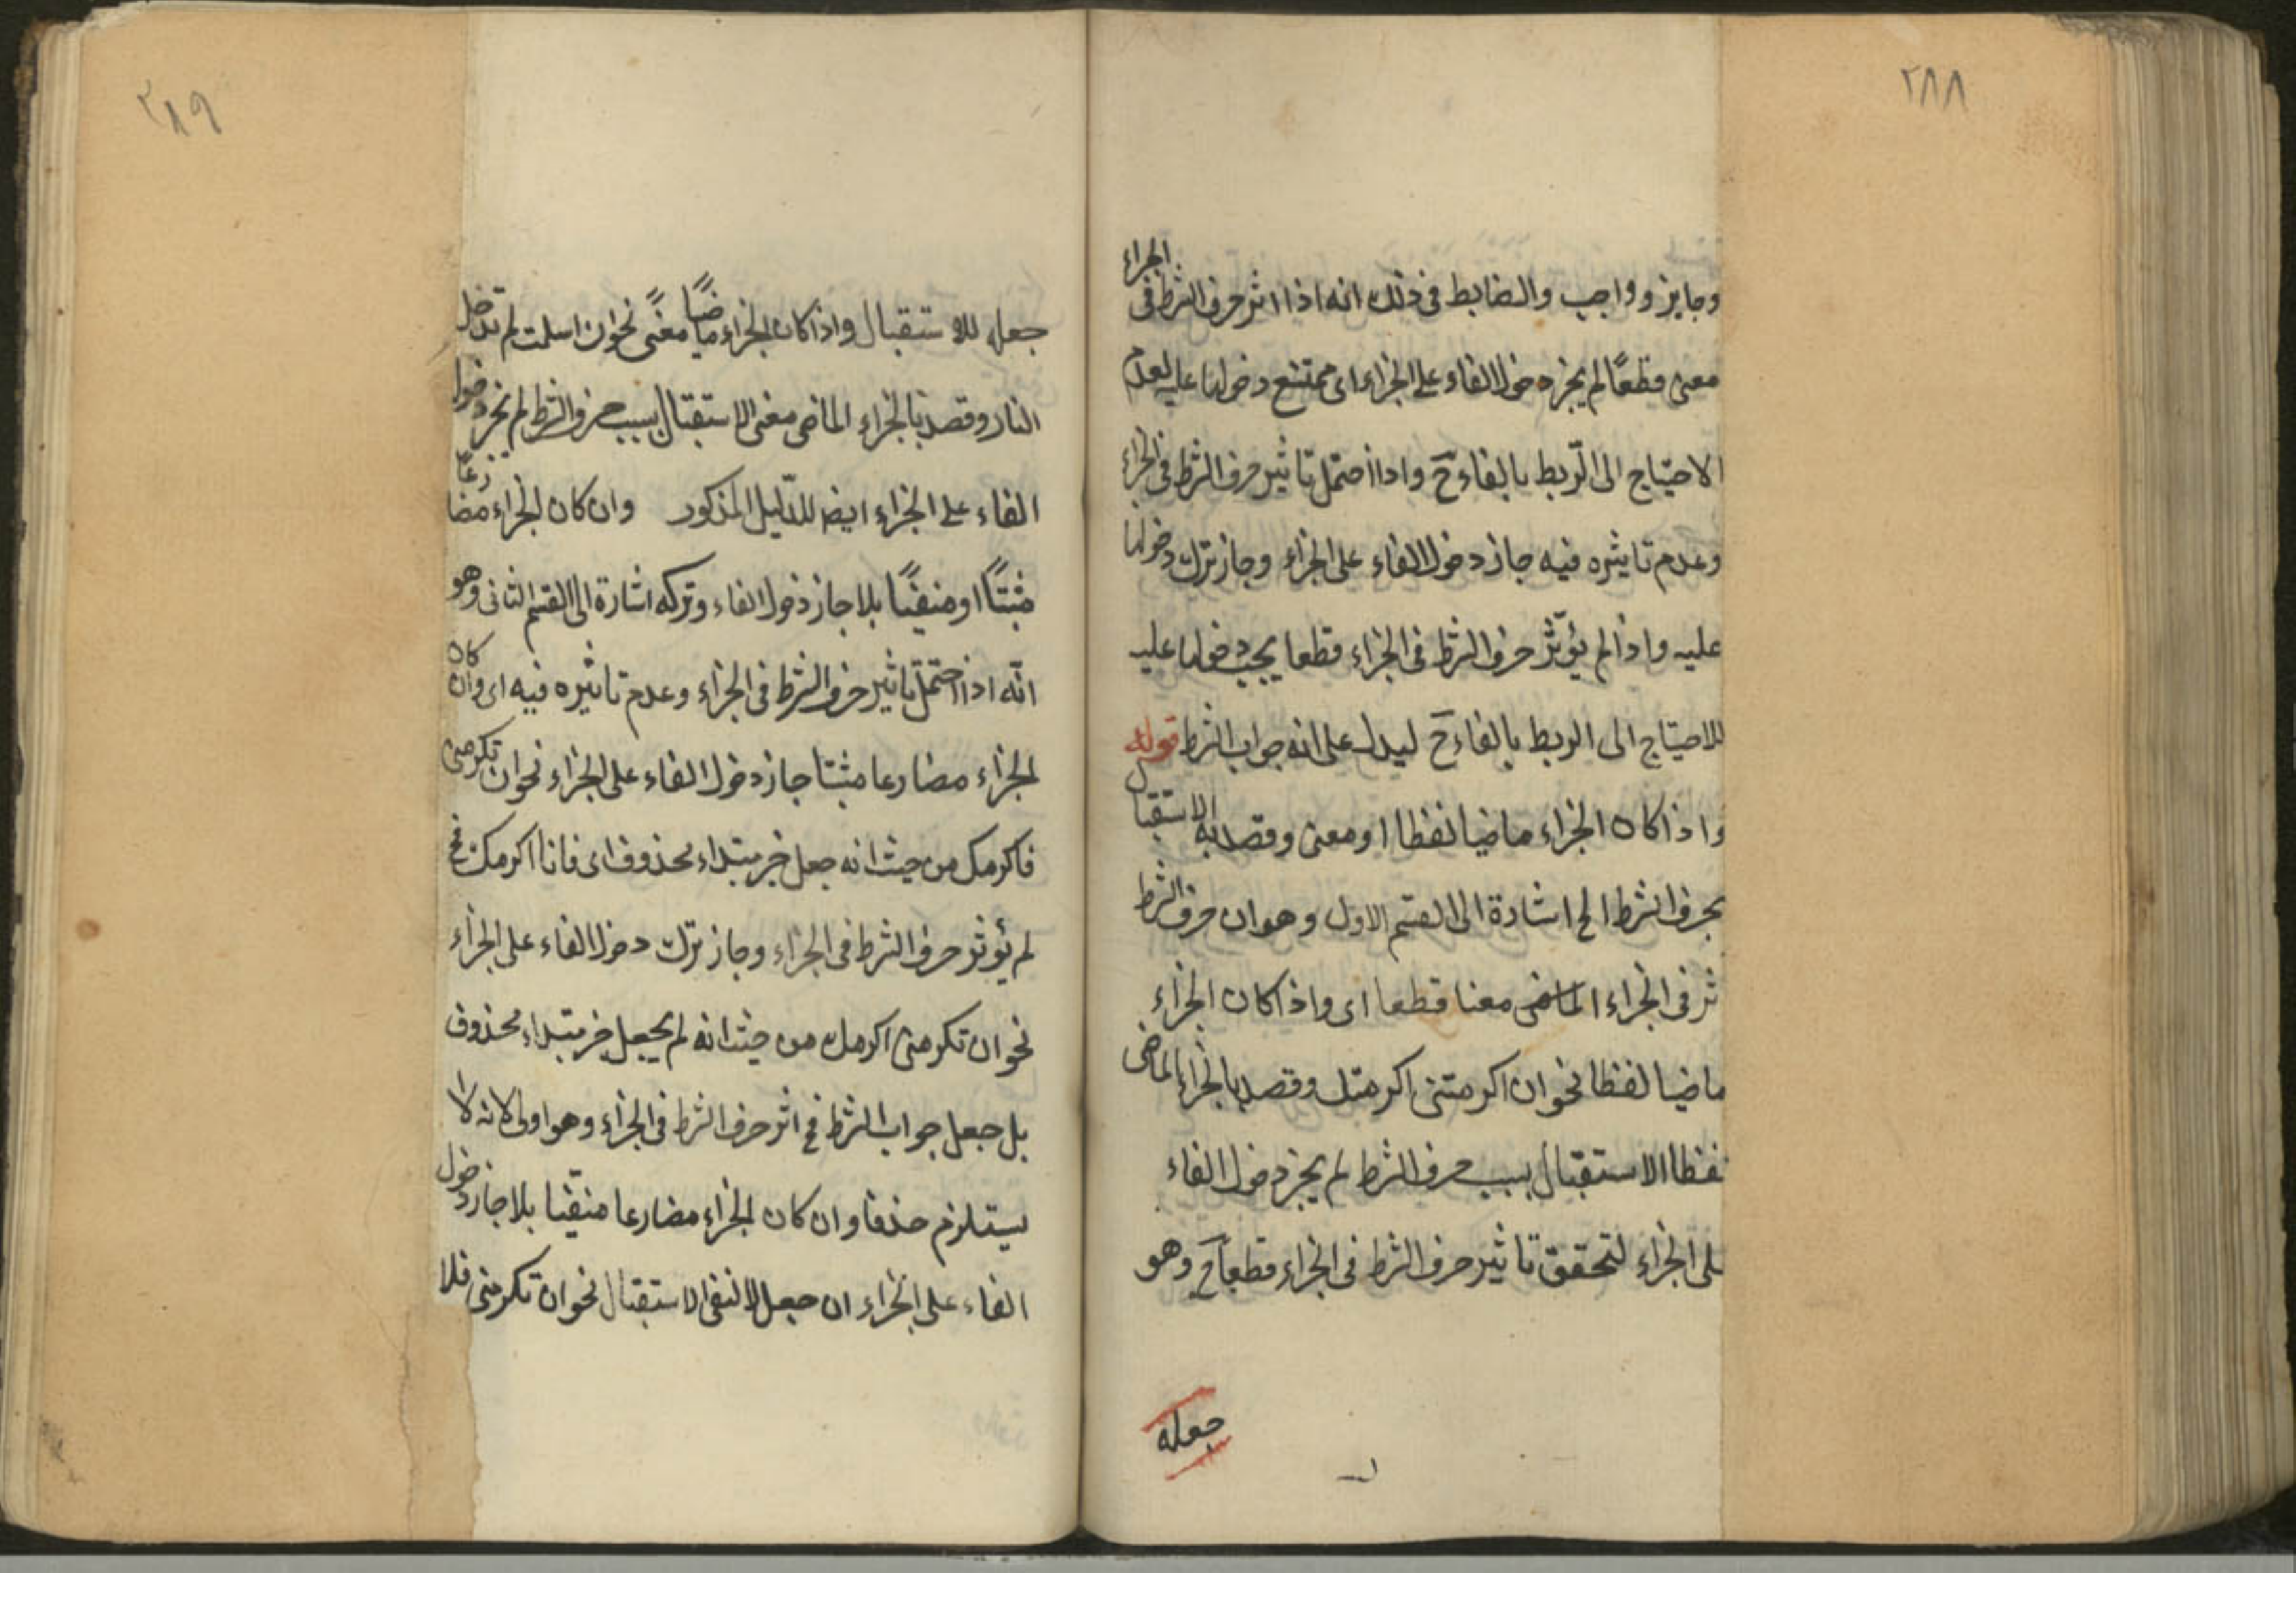 ٢٨٨
وجايز وواجب والضابط فى ذلك انه اذا اثر حرف الشرط فى الجزاء
معنى قطعًا لم يجز دخول الفاء على الجزاء اى ممتنع دخولها عليه لعدم
الاحتياج الى الرّبط بالفاء حَ واذا احتمل تاثير حرف الشرط فى الجزاء
وعدم تاثيره فيه جاز دخول الفاء على الجزاء وجاز ترك دخولها
عليه واذا لم يؤثّر حرف الشرط فى الجزاء قطعا يجب دخولها عليه
للاحتياج الى الربط بالفاء حَ ليدل على انه جواب الشرط قوله
واذا كان الجزاء ماضيا لفظا او معنى وقصد به الاستقبال
بحرف الشرط الخ اشارة الى القسم الاول وهو ان حرف الشرط
ثر فى الجزاء الماضى معنا قطعا اى واذا كان الجزاء
ماضيا لفظا نحو ان اكرمتنى اكرمتك وقصد بالجزاء الماضى
لفظا الاستقبال بسبب حرف الشرط لم يجز دخول الفاء
على الجزاء لتحقق تاثير حرف الشرط فى الجزاء قطعا حَ وهو
جعله
٢٨٩
جعله للاستقبال واذا كان الجزاء ماضيًا معنًى نحو ان اسلمت لم تدخل
النار وقصد بالجزاء الماضى معنى الاستقبال بسبب حرف الشرط لم يجز دخول
الفاء على الجزاء ايضا للدّليل المذكور وان كان الجزاء مضارعًا
مثبتًا او منفيًا بلا جاز دخول الفاء وتركه اشارة الى القسم الثانى وهو
انّه اذا احتمل تاثير حرف الشرط فى الجزاء وعدم تاثيره فيه اى وان كان
الجزاء مضارعا مثبتا جاز دخول الفاء على الجزاء نحو ان تكرمنى
فاكرمك من حيث انه جعل خبر مبتداء محذوف اى فانا اكرمك فح
لم يؤثر حرف الشرط فى الجزاء وجاز ترك دخول الفاء على الجزاء
نحو ان تكرمنى اكرمك من حيث انه لم يجعل خبر مبتداء محذوف
بل جعل جواب الشرط فح اثر حرف الشرط فى الجزاء وهو اولى لانه لا
يستلزم حذفا وان كان الجزاء مضارعا منفيا بلا جاز دخول
الفاء على الجزاء ان جعل لا لنفى الاستقبال نحو ان تكرمنى فلا